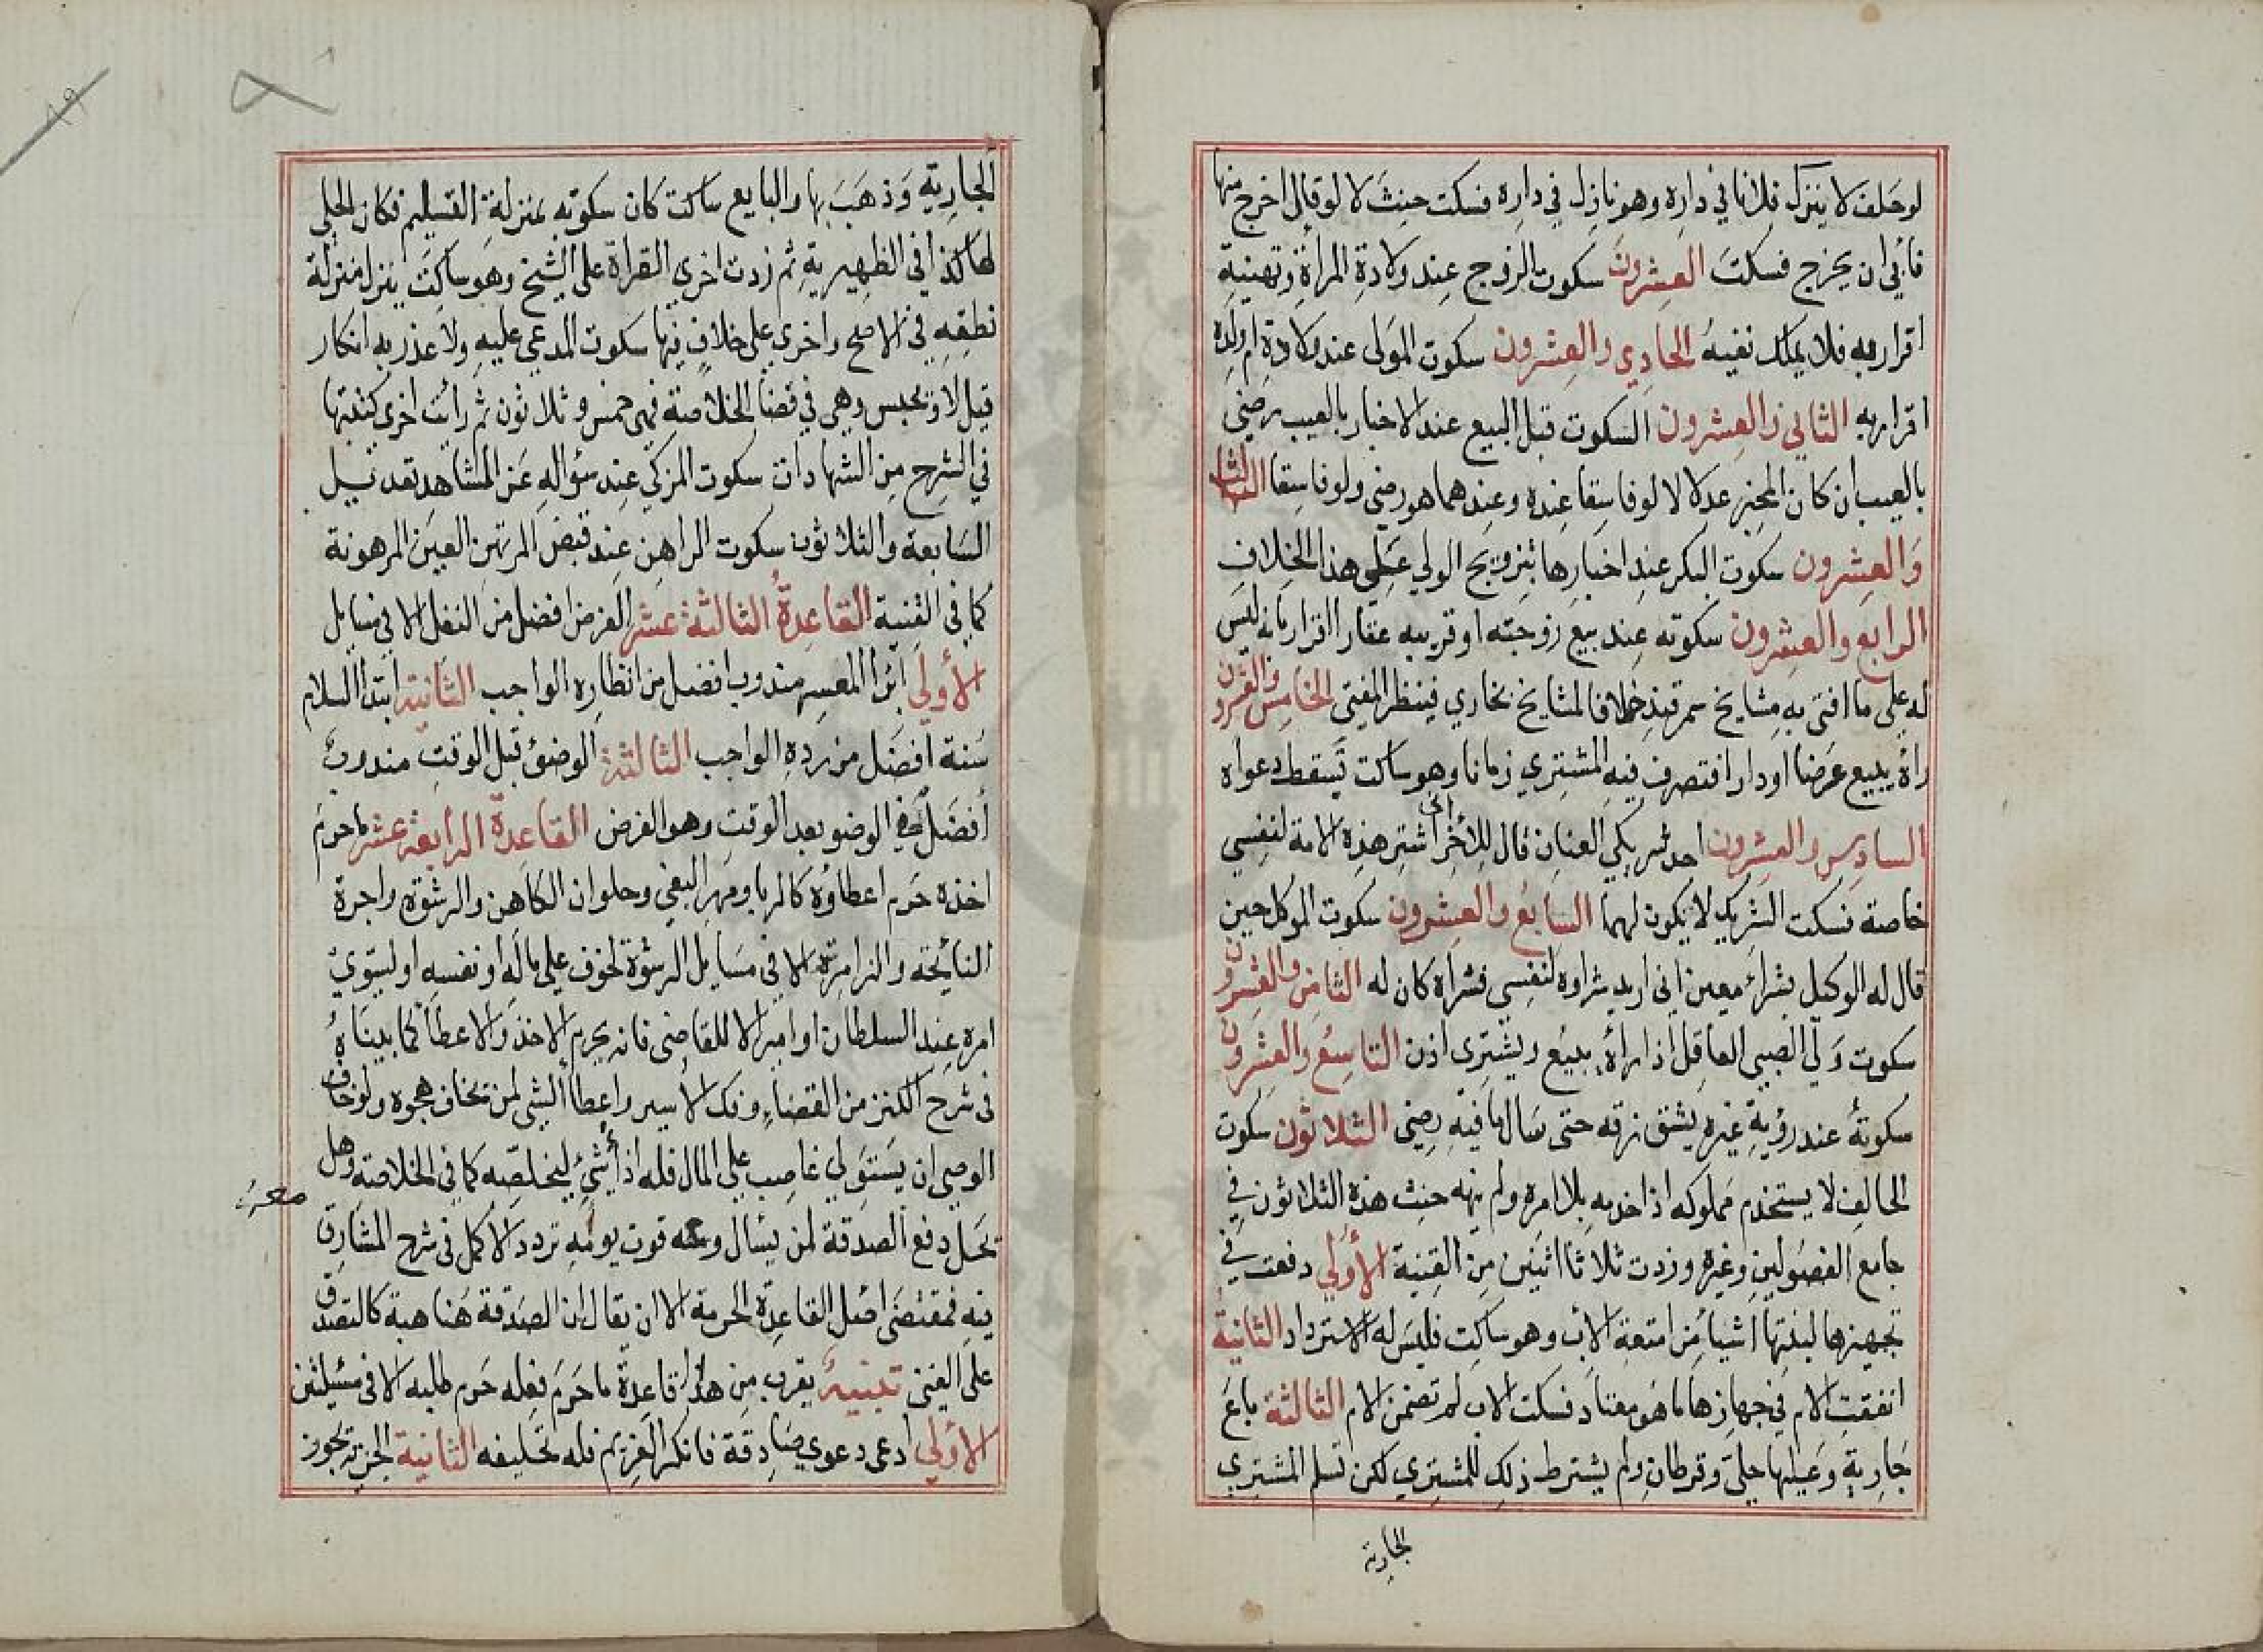 لو حلف لا ينزل فلانا في داره وهو نازل في داره فسكت حنث لا لو قال اخرج منها
فابي ان يخرج فسكت العشرون سكوت الزوج عند ولادة المراة وتهنيته
اقرار به فلا يملك نفيه الحادي والعشرون سكوت المولى عند ولادة ام ولده
اقرار به الثاني والعشرون السكوت قبل البيع عند الاخبار بالعيب رضي
بالعيب ان كان المخبر عدلا لا لو فاسقا عنده وعندهما هو رضي ولو فاسقا الثالث
والعشرون سكوت البكر عند اخبارها بتزويج الولي على هذا الخلاف
الرابع والعشرون سكوته عند بيع زوجته او قريبه عقارا اقرار بانه ليس
له على ما افتى به مشايخ سمرقند خلافا لمشايخ بخاري فينظر المفتي الخامس والعشرون
راه يبيع عرضا او دارا فتصرف فيه المشتري زمانا وهو ساكت تسقط دعواه
السادس والعشرون احد شريكي العنان قال للاخر اني اشتر هذه الامة لنفسي
خاصة فسكت الشريك لا يكون لهما السابع والعشرون سكوت الموكل حين
قال له الوكيل بشراء معين اني اريد شراوه لنفسي فشراه كان له الثامن والعشرون
سكوت ولي الصبي العاقل اذا راه يبيع ويشتري اذن التاسع والعشرون
سكوته عند رؤية غيره يشق زقه حتى سال ما فيه رضي الثلاثون سكوت
الحالف لا يستخدم مملوكه اذا خدمه بلا امره ولم ينهه حنث هذه الثلاثون في
جامع الفصولين وغيره وزدت ثلاثا اثنين من القنية الأولي دفعت في
تجهيزها لبنتها اشياء من امتعة الاب وهو ساكت فليس له الاسترداد الثانية
انفقت الام في جهازها ما هو معتاد فسكت الاب لم تضمن الام الثالثة باع
جارية وعليها حلي وقرطان ولم يشترط ذلك للمشتري لكن تسلم المشتري
الجارية
الجارية وذهب بها والبايع ساكت كان سكوته بمنزلة التسليم فكان الحلي
لها كذا في الظهيرية ثم زدت اخرى القراة على الشيخ وهو ساكت ينزل منزلة
نطقه في الاصح واخرى على خلاف فيها سكوت المدعي عليه ولا عذر به انكار
قيل لا ويحبس وهي في قضا الخلاصة فهي خمس وثلاثون ثم رأيت اخرى كتبتها
في الشرح من الشهادات سكوت المزكي عند سؤاله عن الشاهد تعديل
السابعة والثلاثون سكوت الراهن عند قبض المرتهن العين المرهونة
كما في القنية القاعدة الثالثة عشر الفرض افضل من النفل الا في مسايل
الأولي ابرا المعسر مندوب افضل من انظاره الواجب الثانية ابتدا السلام
سنة افضل من رده الواجب الثالثة الوضوء قبل الوقت مندوب
أفضل في الوضو بعد الوقت وهو الفرض القاعدة الرابعة عشر ما حرم
اخذه حرم اعطاؤه كالربا ومهر البغي وحلوان الكاهن والرشوة واجرة
النائحة والزامرة الا في مسايل الرشوة لخوف على ماله او نفسه او ليسوي
امره عند السلطان او امير الا للقاضي فانه يحرم الاخذ والاعطا كما بيناه
في شرح الكنز من القضاء وفك الاسير واعطا الشي لمن يخاف هجوه ولو خاف
الوصي ان يستولي غاصب على المال فله اذا شيء ليخلصه كما في الخلاصة وهل
تحل دفع الصدقة لمن يسال ومعه قوت يومه تردد الاكمل في شرح المشارق
فيه فمقتضى اصل القاعدة الحرمة الا ان يقال ان الصدقة هنا هبة كالتصدق
على الغني تنبيه يقرب من هذا قاعدة ما حرم فعله حرم طلبه الا في مسئلتين
الأولي ادعى دعوي صادقة فانكر الغريم فله تحليفه الثانية الجزية تجوز